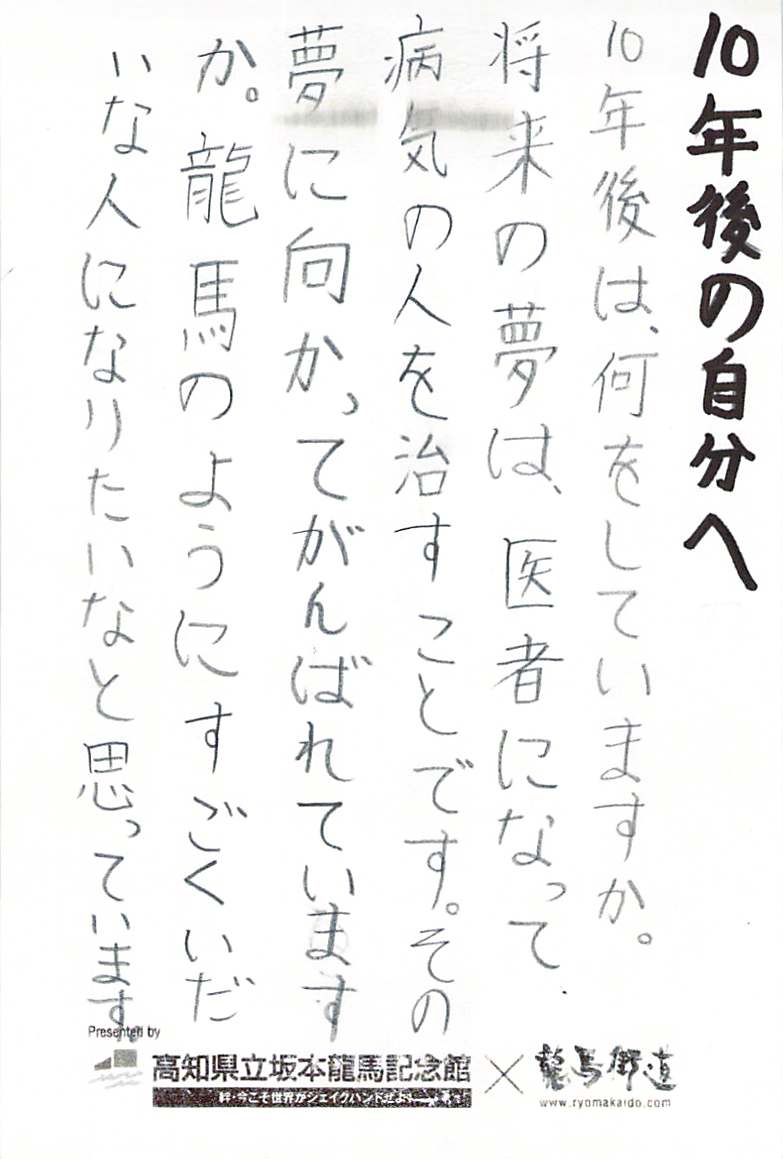 10年後の自分へ
10年後は、何をしていますか。
将来の夢は、医者になって
病気の人を治すことです。その
夢に向かってがんばれています
か。龍馬のようにすごくいだ
いな人になりたいなと思っています。
Presented by
高知県立坂本龍馬記念館×龍馬街道
絆・今こそ世界がシェイクハンドぜよ!
www.ryomakaido.com